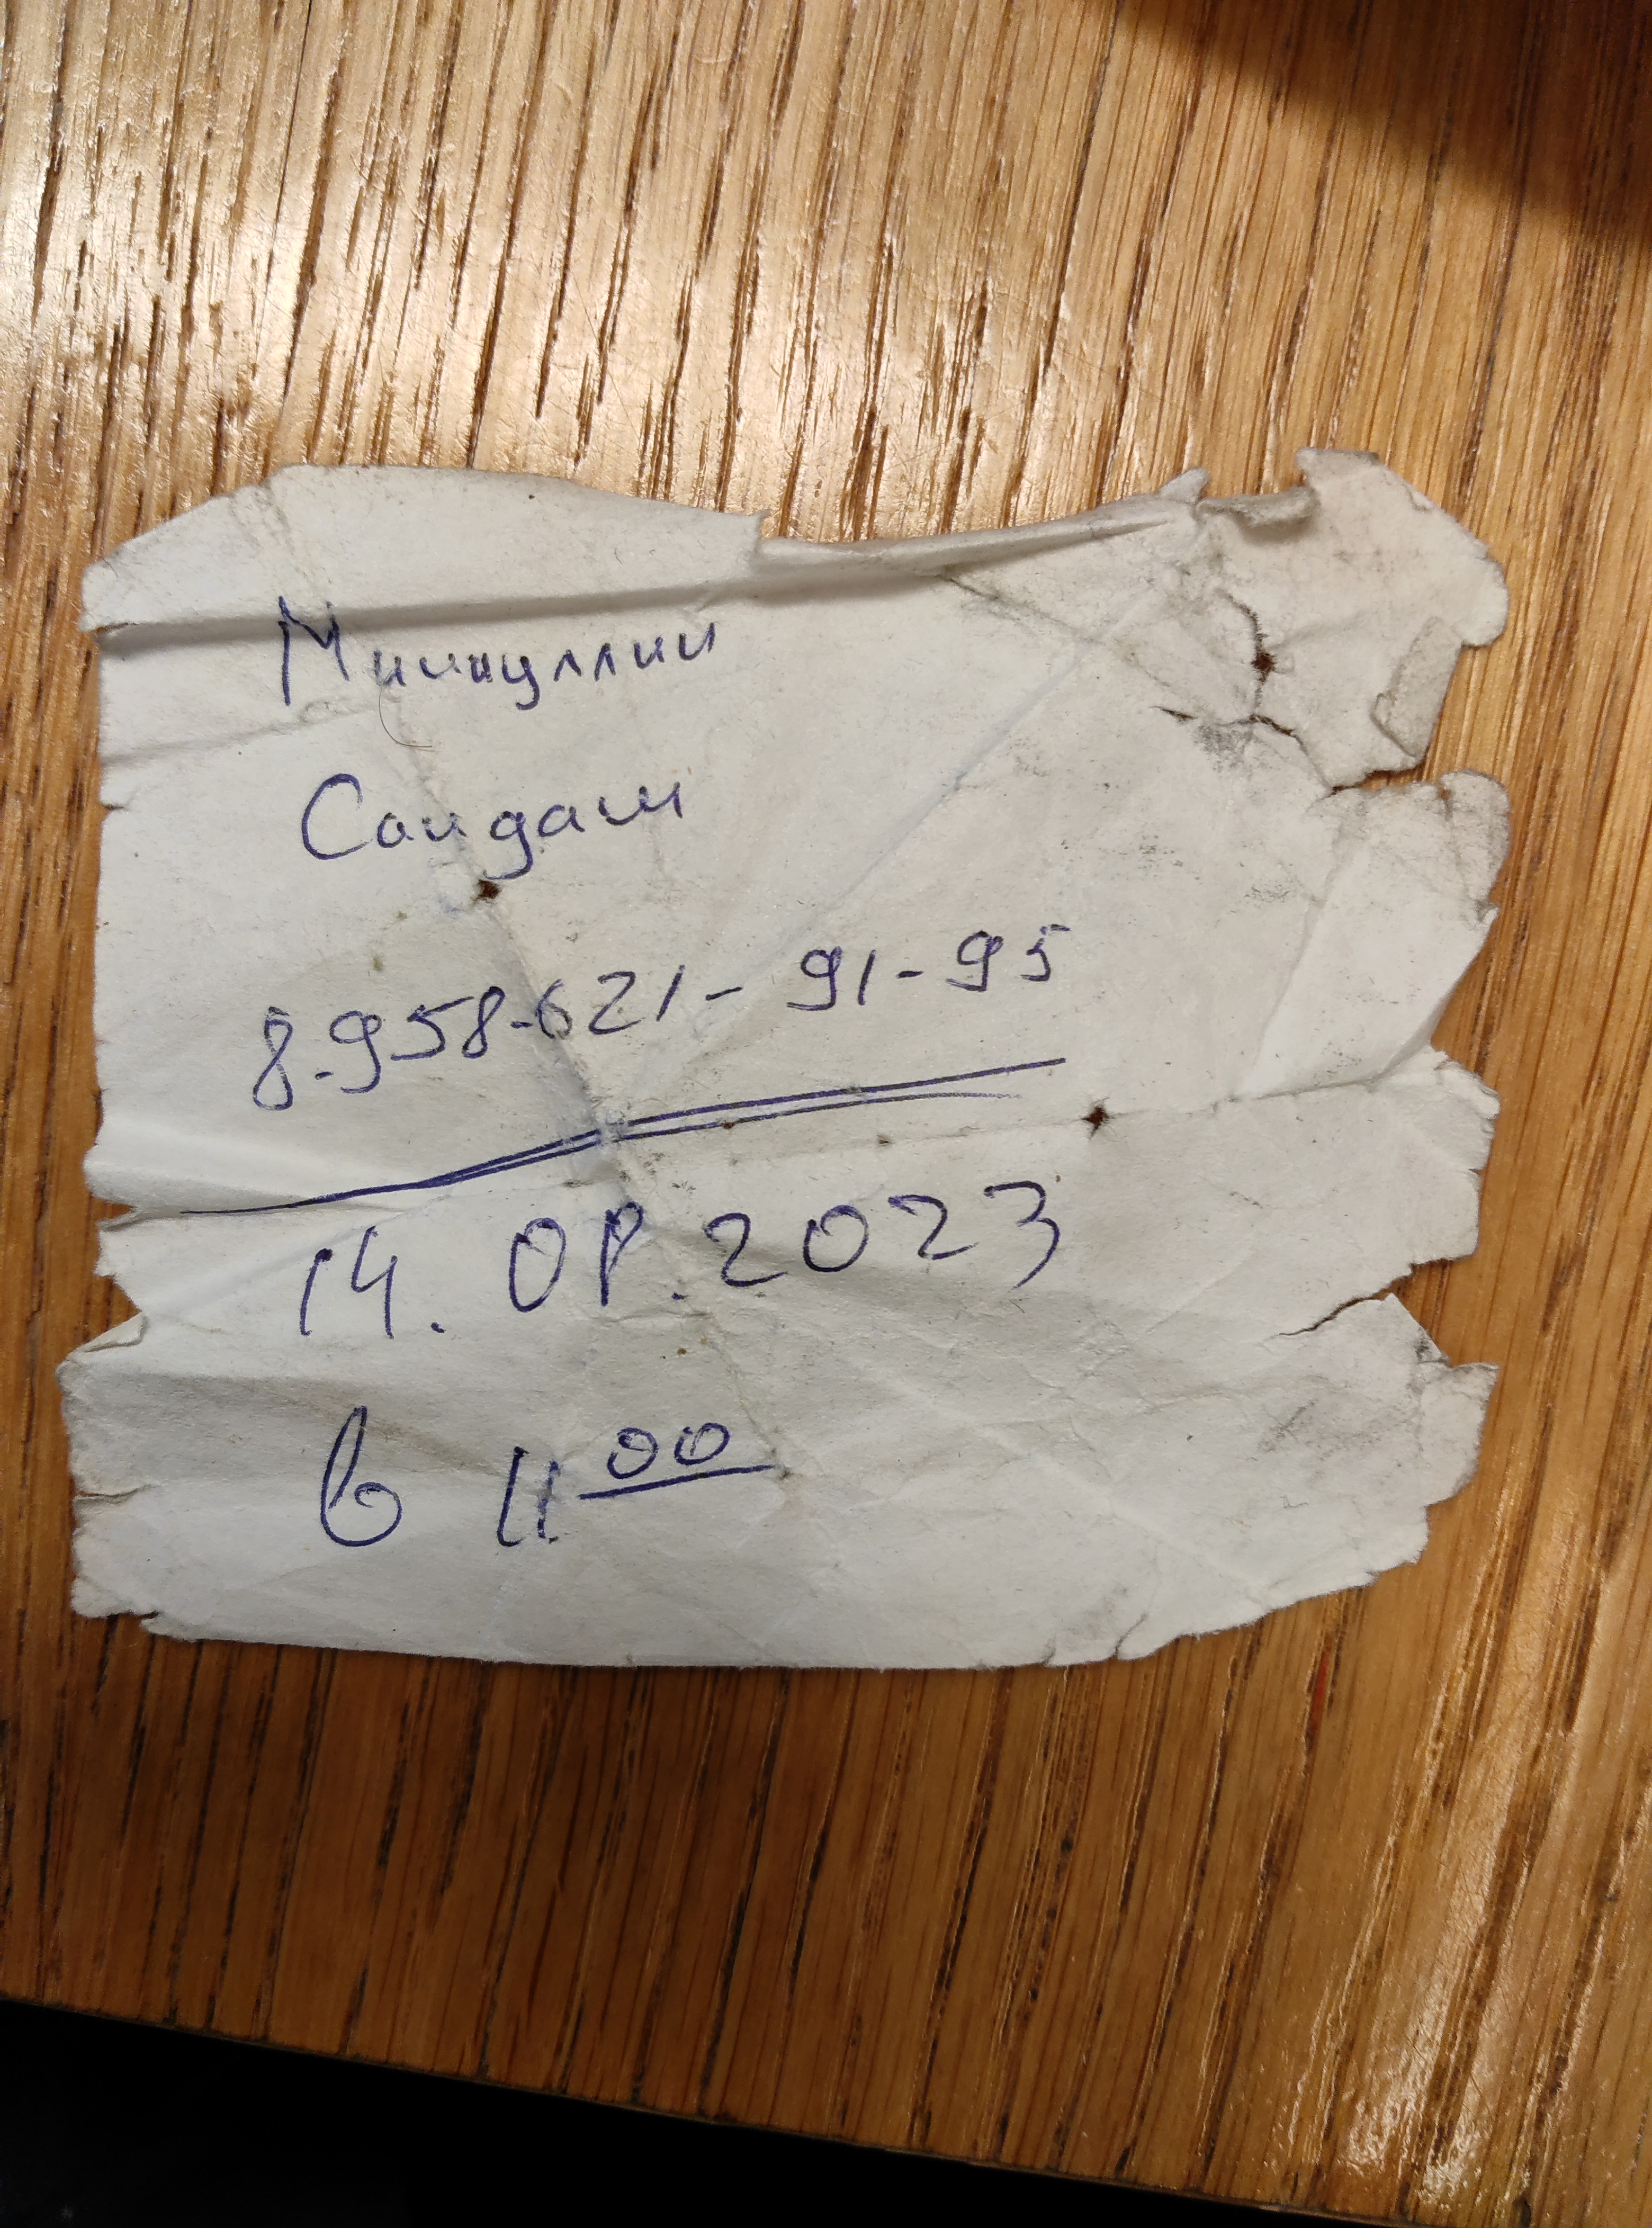 Миннуллин
Саидаш
8-958-621-91-95
14.08.2023
в 11 00